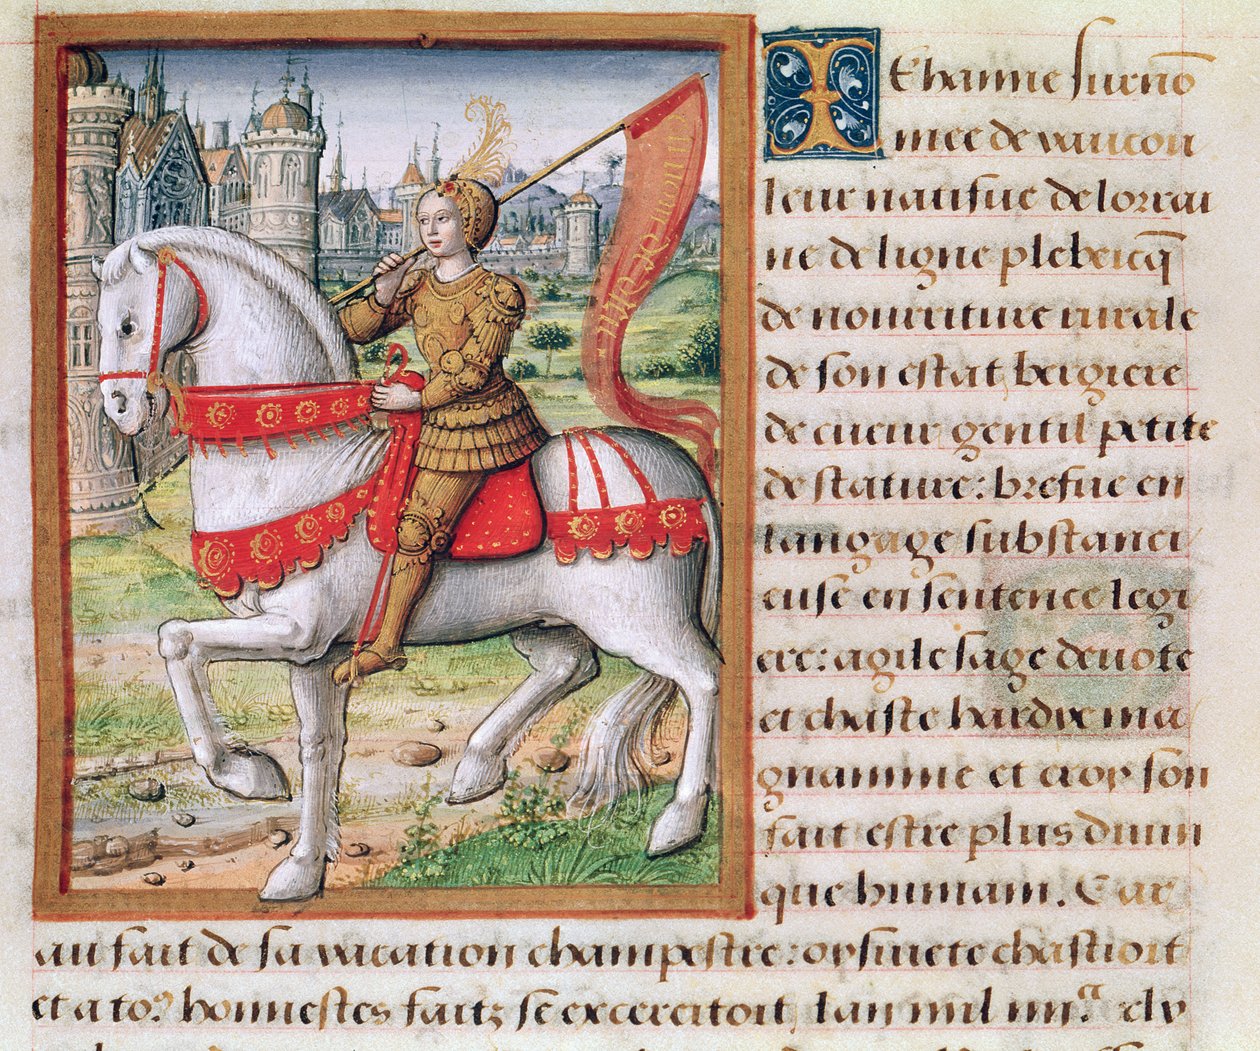 Iehanne surnō
mee de waucou
leur natifue de lorrai
ne de ligne plebeicq̄
de nourriture rurale
de son estat bergiere
de cueur gentil petite
de stature: brefue en
langage substanci
euse en sentence legi
ere: agile sage deuote
et chaste hardie ma
gnanime et croy son
fait estre plus diuin
que humain. Car
au fait de sa vacation champestre: oysiuete chastioit
et a toꝰ honnestes faitz se excercitoit, lan mil iiii.